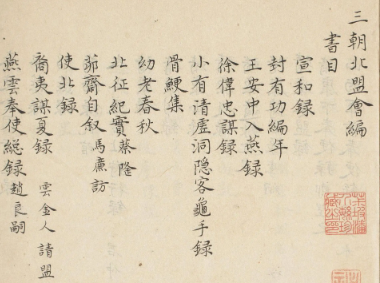 三朝北盟會編
書目
宣和錄
封有功編年
王安中入燕錄
徐偉忠謀錄
小有清虛洞隱客龜手錄
骨鯁集
幼老春秋
北征紀實 蔡隆
茆齋自叙 馬廉訪
使北錄
裔夷謀夏錄 雲金人請盟
燕雲奉使總錄 趙良嗣